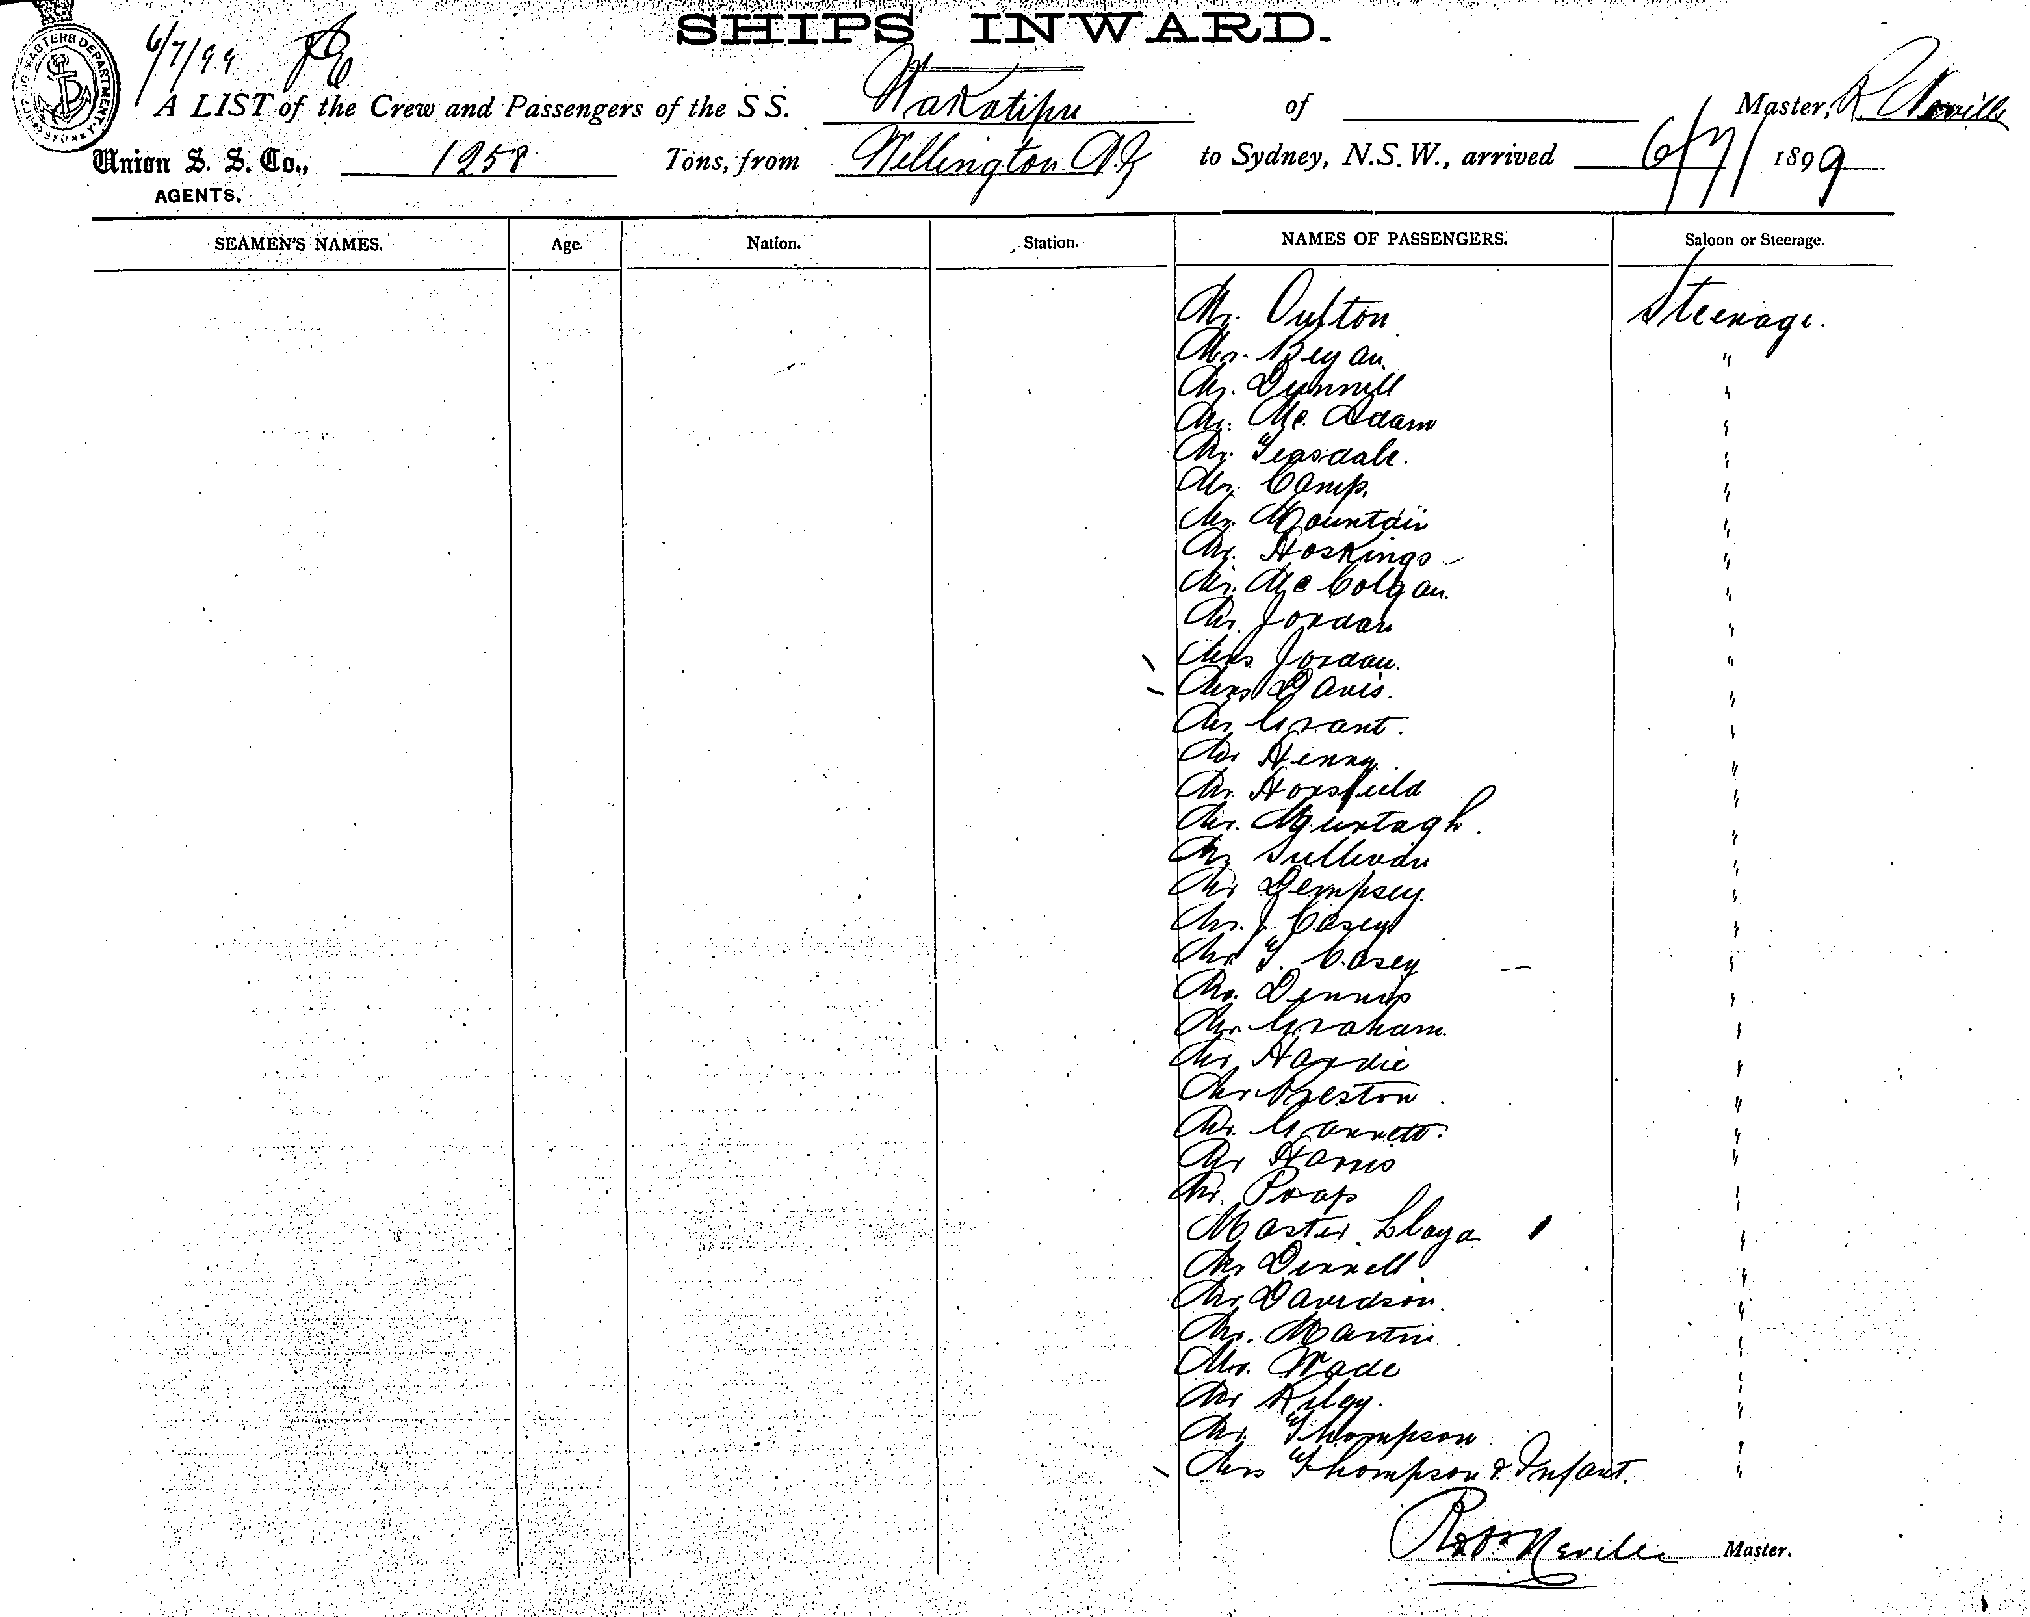 SHIPS INWARD.
6/7/99
A LIST of the Crew and Passengers of the S S. Wakatipu of Master, R Neville
Union S. S. Co., 1958 Tons, from Wellington N.Z to Sydney, N.S.W., arrived 6/7/1899
AGENTS.
SEAMEN'S NAMES. Age. Nation. Station. NAMES OF PASSENGERS. Saloon or Steerage.
Mr. Oulton Steerage.
Mr. Regan. "
Mr. Dunnill "
Mr. Mc Adam "
Mr. Teasdale. "
Mr. Camp. "
Mr. Mountain "
Mr. Hoskings "
Mr. Mc Colgan. "
Mr. Jordan "
Mrs Jordan. "
Mrs Davis. "
Mr Grant. "
Mr Henry. "
Mr. Horsfield "
Mr. Murtagh. "
Mr Sullivan "
Mr Dempsey. "
Mr. J Casey "
Mr T. Casey "
Mr. Dennis "
Mr. Graham "
Mr Hardie "
Mr Preston "
Mr. Garrett. "
Mr Harris "
Mr. "
Master "
Mr "
Mr Davidson. "
Mr. Martin "
Mr. Wade "
Mr Riley. "
Mr Thompson "
Mrs Thompson & Infant. "
Robt Neville Master.